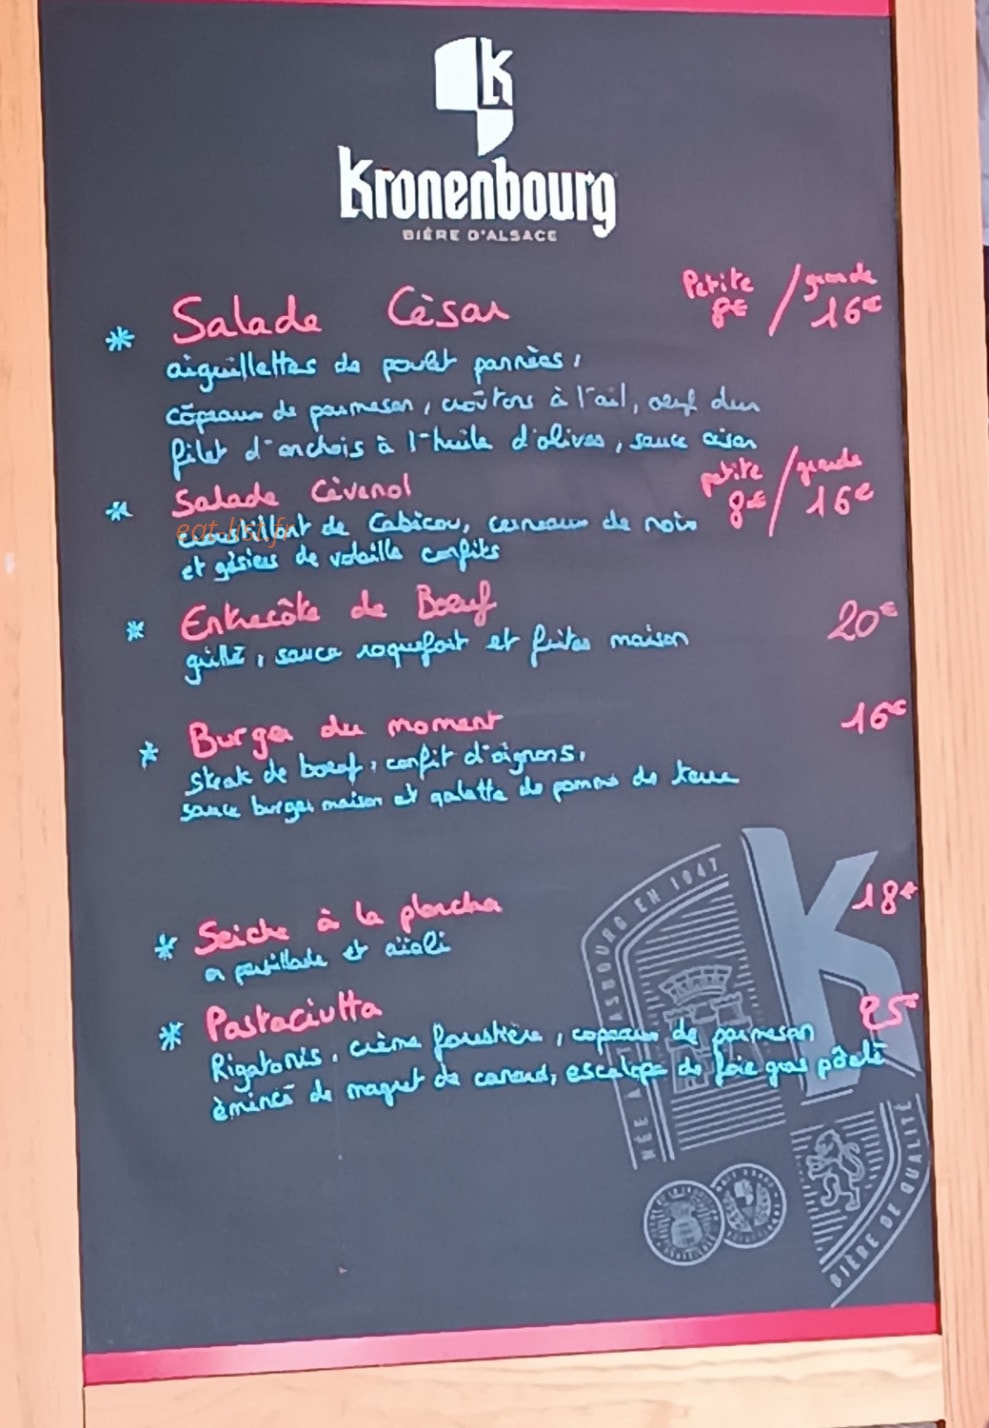 K
Kronenbourg
BIÈRE D'ALSACE
* Salade Cèsar Petite 8€ / grande 16€
aiguillettes de poulet pannèes,
côpeaux de parmesan, croûtons à l'ail, oeuf dur
filet d'anchois à l'huile d'olives, sauce césar
* Salade Cèvenol petite 8€ / grande 16€
eat-list.fr
croustillant de Cabicou, cerneaux de noix
et gésiers de volaille confits
* Entrecôte de Boeuf 20€
grillé, sauce roquefort et frites maison
* Burger du moment 16€
Steak de boeuf, confit d'oignons,
sauce burger maison et galette de pomme de terre
* Seiche à la plancha 18€
en persillade et aïoli
* Pastaciutta 25€
Rigatonis, crème forestière, copeaux de parmesan
èmincé de magret de canard, escalope de foie gras pôêlé
NÉE À STRASBOURG EN 1947
K
BIÈRE DE QUALITÉ